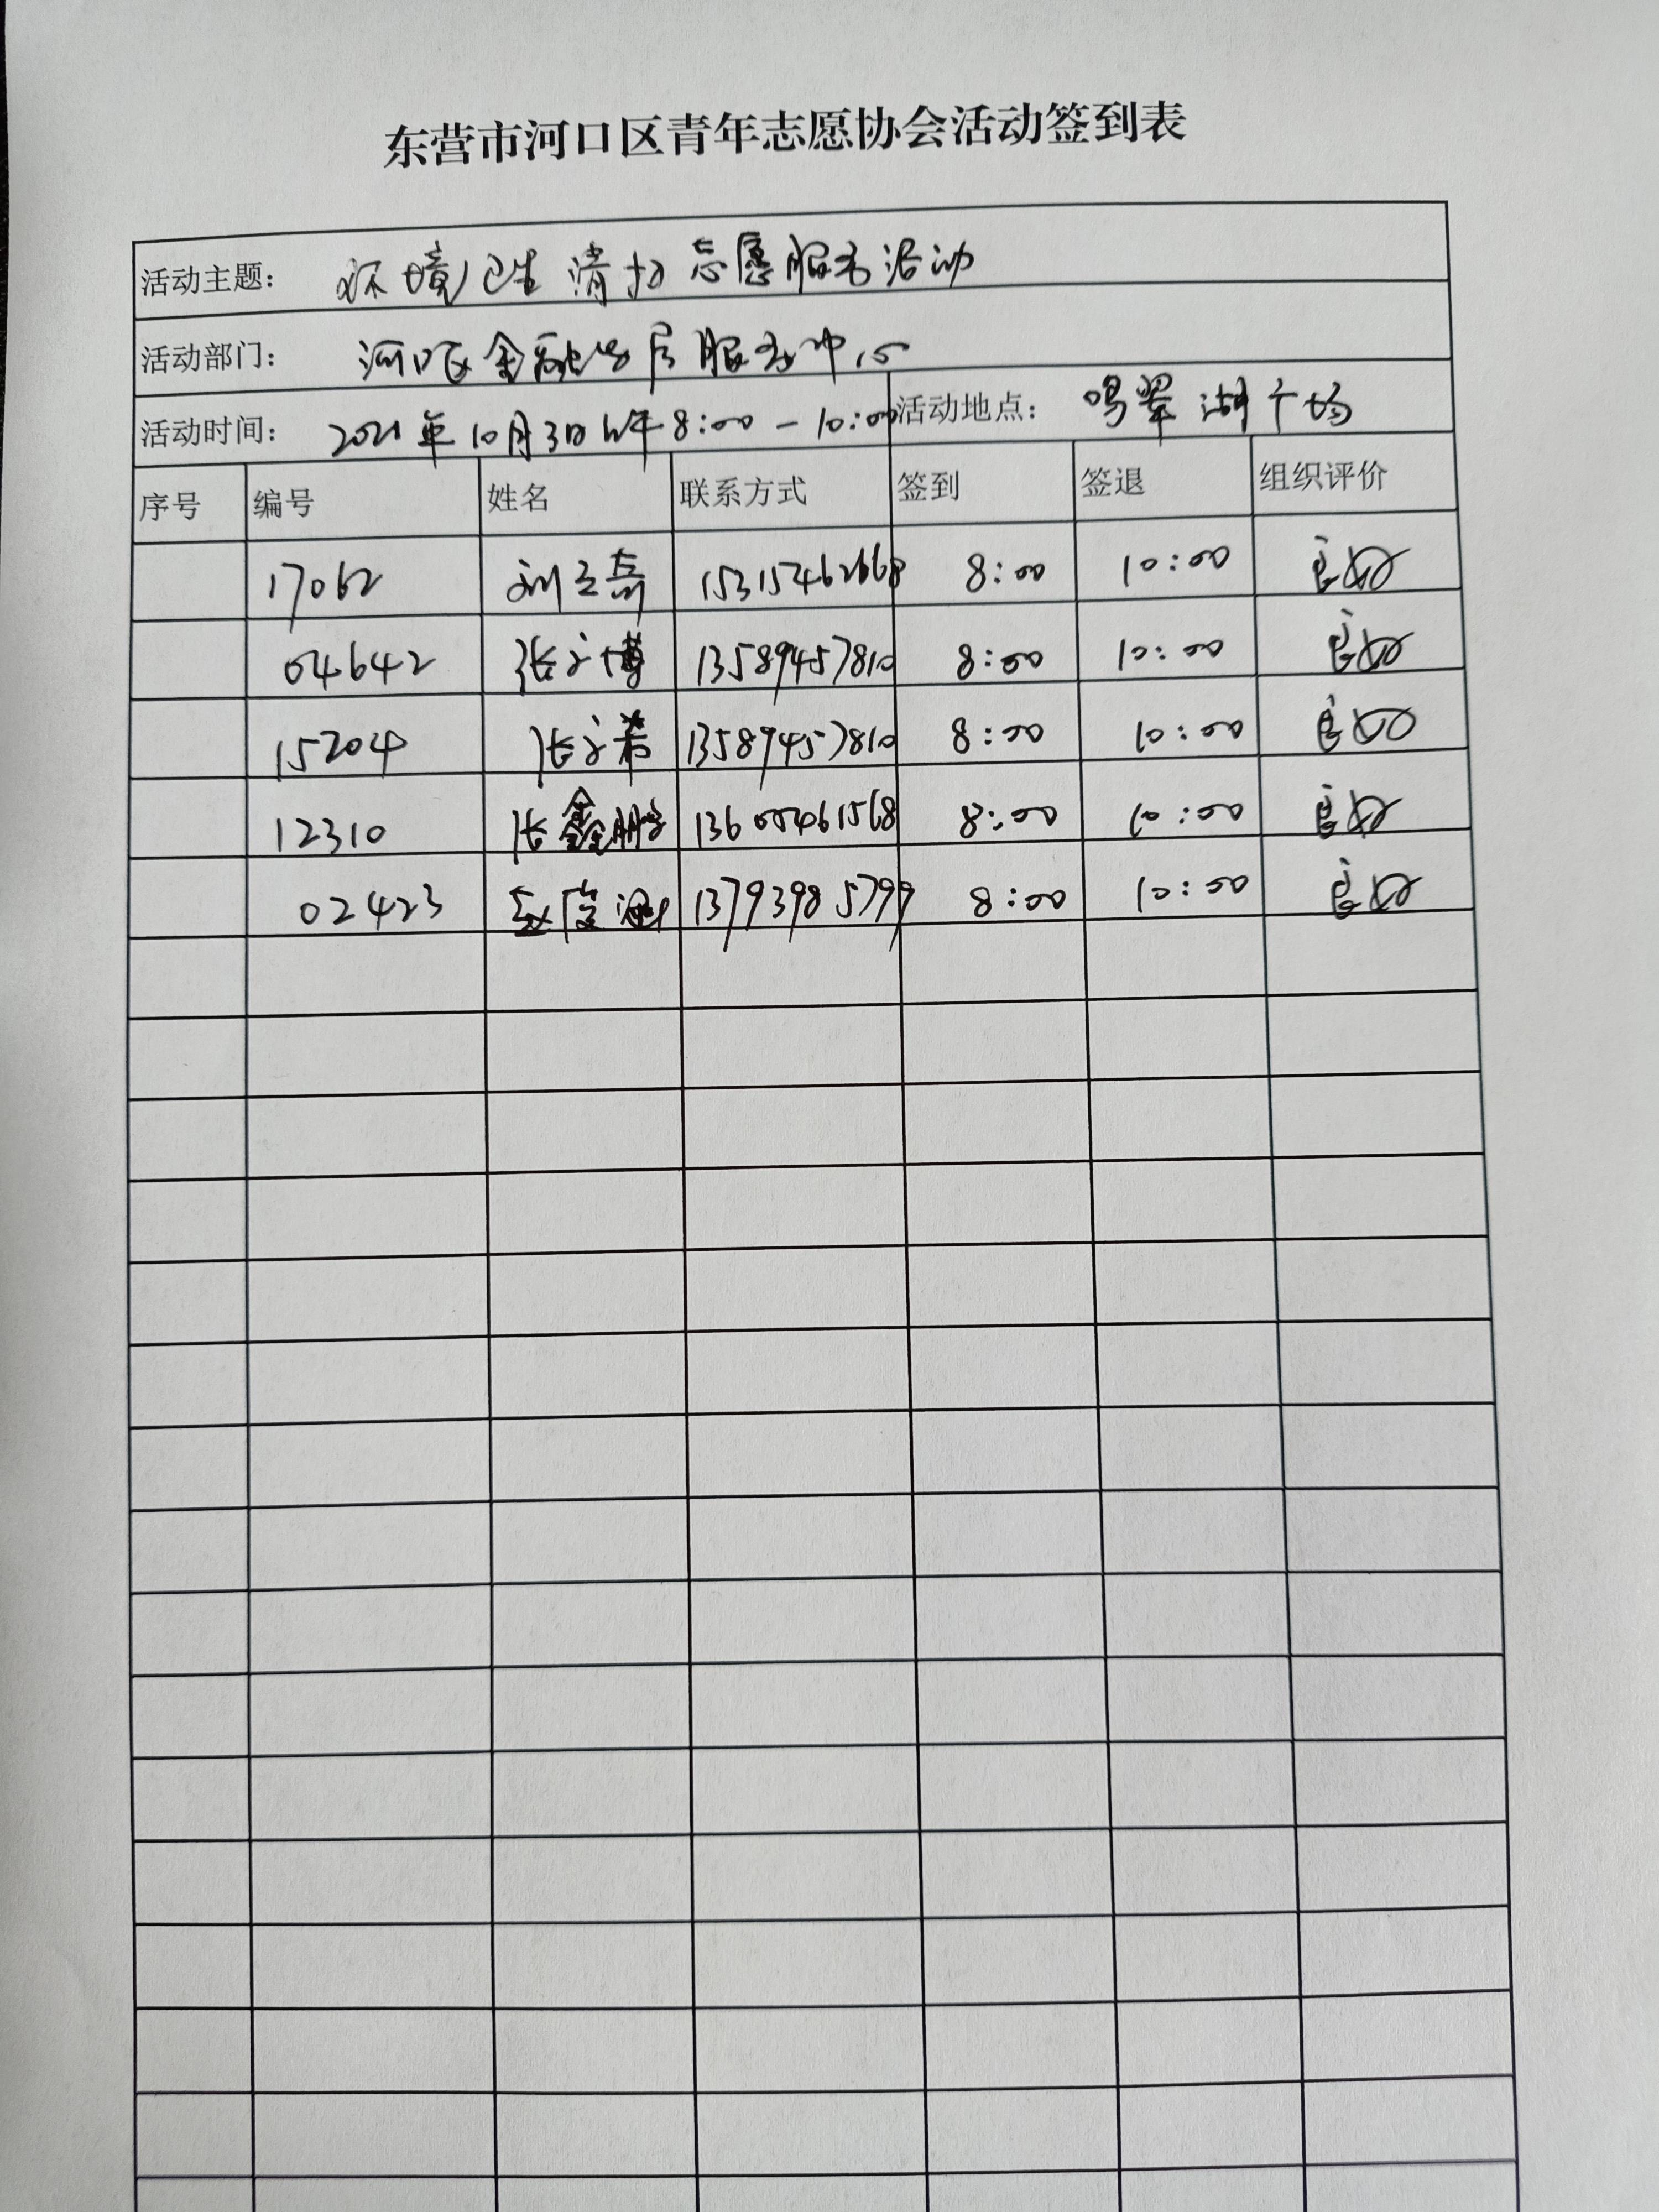 东营市河口区青年志愿协会活动签到表
活动主题： 环境卫生清扫志愿服务活动
活动部门： 河口区金融发展服务中心
活动时间： 2021年10月3日上午8:00-10:00 活动地点： 鸣翠湖广场
序号 编号 姓名 联系方式 签到 签退 组织评价
17062 刘立 15315462668 8:00 10:00 良好
04642 张文博 13589457810 8:00 10:00 良好
15204 张文 13589457810 8:00 10:00 良好
12310 张鑫鹏 13605461568 8:00 10:00 良好
02423 13793985799 8:00 10:00 良好